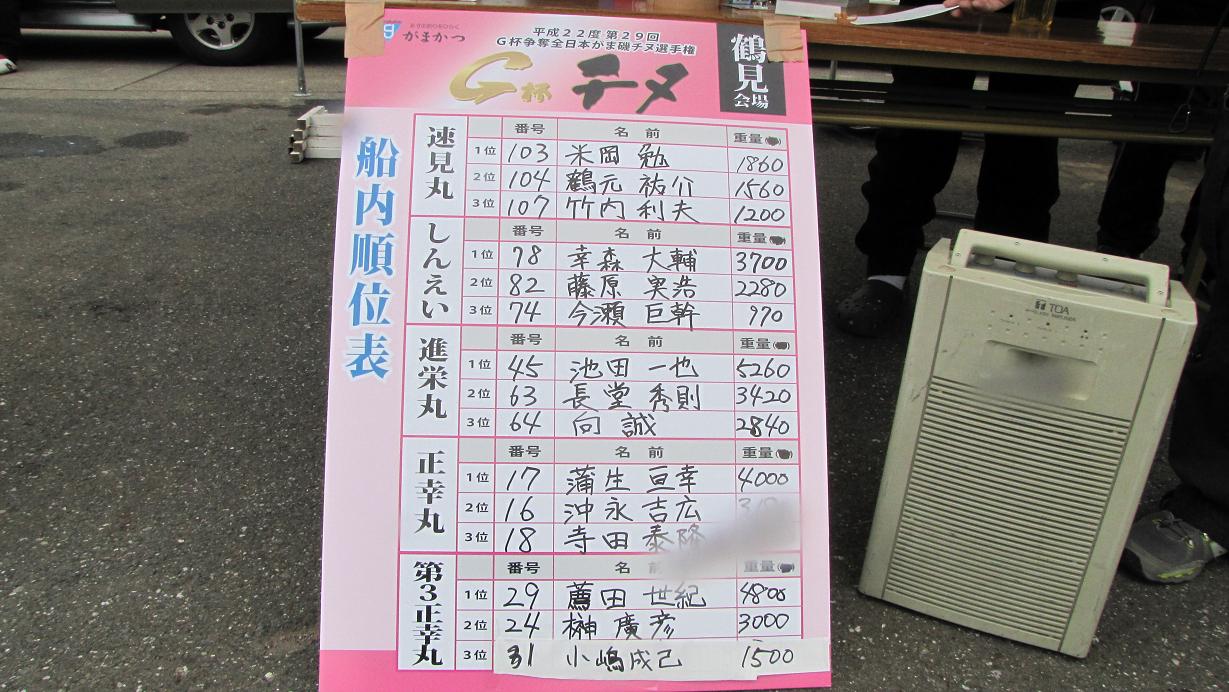 がまかつ
平成22度 第29回
G杯争奪全日本がま磯チヌ選手権
G杯 チヌ
鶴見
会場
船内順位表
速見丸
番号 名前 重量
1位 103 米岡 勉 1860
2位 104 鶴元 祐介 1560
3位 107 竹内 利夫 1200
しんえい
番号 名前 重量
1位 78 幸森 大輔 3700
2位 82 藤原 実浩 2280
3位 74 今瀬 巨幹 970
進栄丸
番号 名前 重量
1位 45 池田 一也 5260
2位 63 長堂 秀則 3420
3位 64 向 誠 2840
正幸丸
番号 名前 重量
1位 17 蒲生 亘幸 4000
2位 16 沖永 吉広
3位 18 寺田 泰隆
第3正幸丸
番号 名前 重量
1位 29 薦田 世紀 4800
2位 24 榊 廣彦 3000
3位 31 小嶋成己 1500
TOA